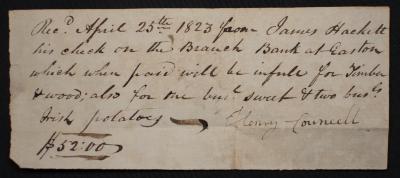 Rec.d April 25th 1823 from James Hackett
his check on the Branch Bank at Easton
which when paid will be in full for Timber
& wood; also for the bus.l sweet & two bus.ls
Irish potatoes
Henry Councell
$52:00